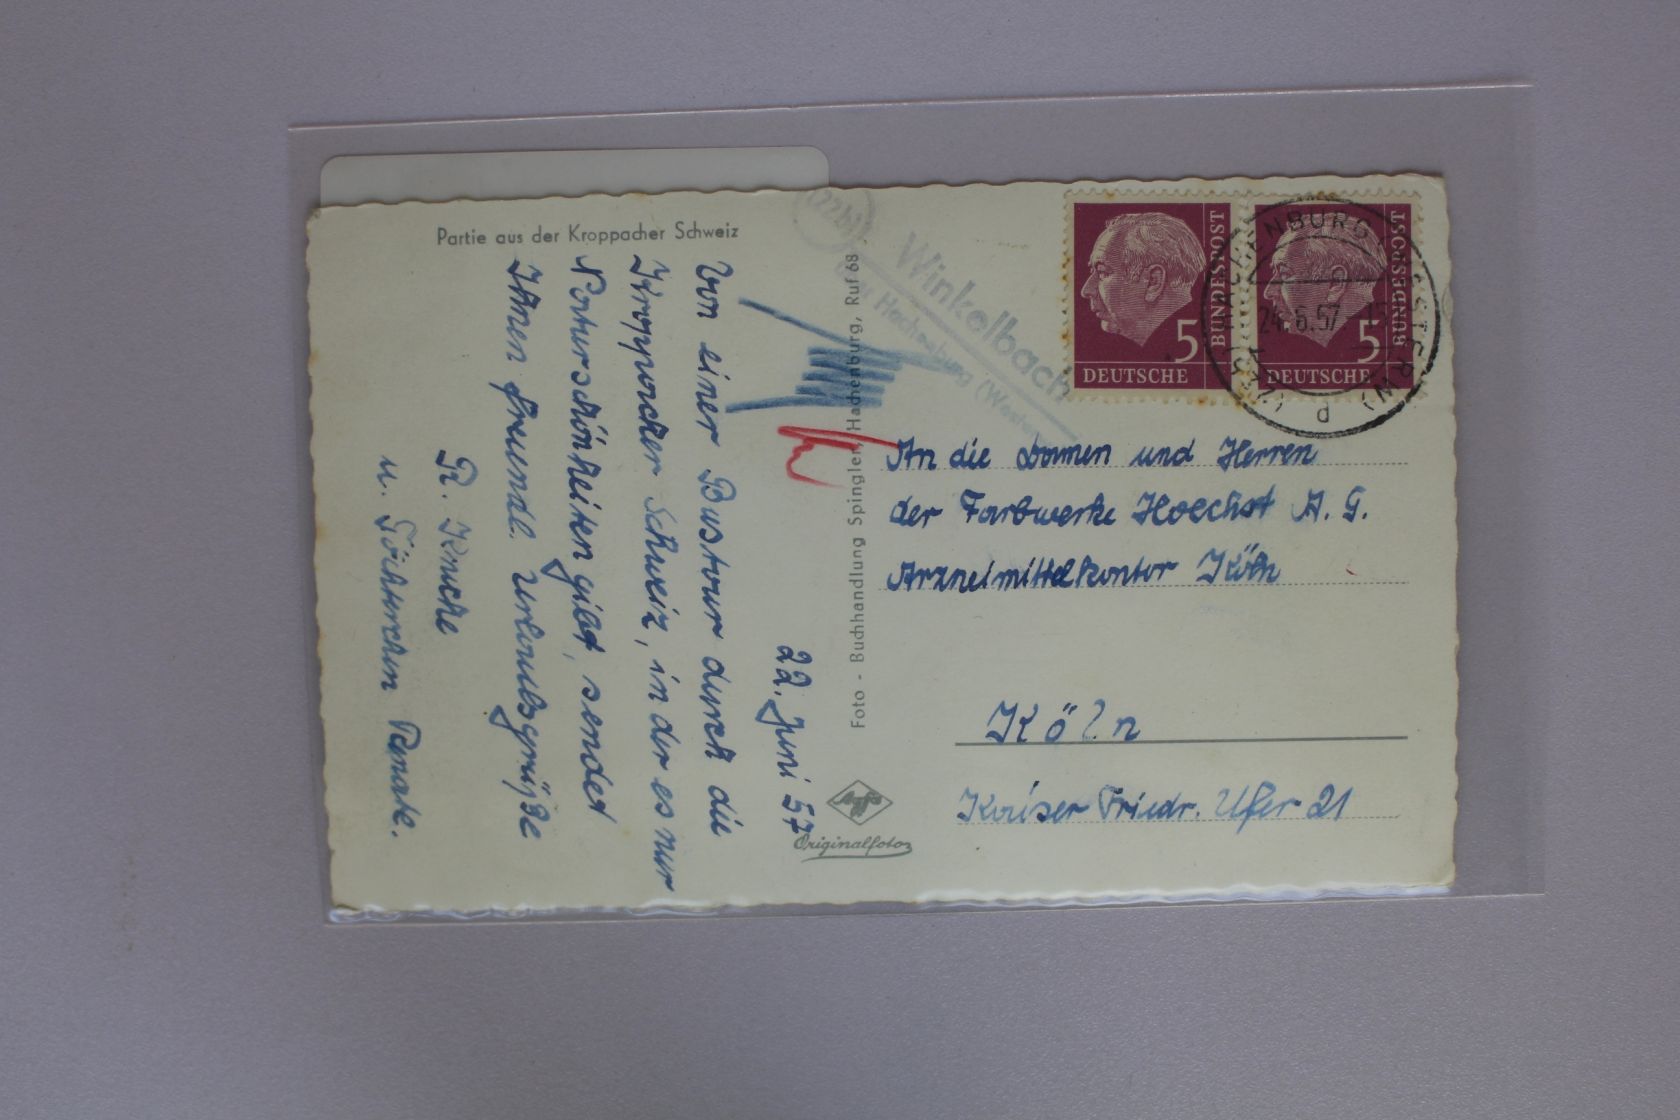 Partie aus der Kroppacher Schweiz
22. Juni 57
Von einer Bustour durch die
Kroppacher Schweiz, in der es nur
Naturschönheiten gibt, sendet
Ihnen freundl. Urlaubsgrüße
R.
u. Töchterchen Renate.
Foto - Buchhandlung Spingler, Hachenburg, Ruf 68
Agfa
Originalfoto
(22b)
Winkelbach
über Hachenburg (Westerw
5
BUNDESPOST
DEUTSCHE
5
BUNDESPOST
DEUTSCHE
HACHENBURG
(WESTERW)
24.6.57
An die Damen und Herren
der Farbwerke Hoechst A. G.
Arzneimittelkontor Köln
Köln
Kaiser Friedr. Ufer 21